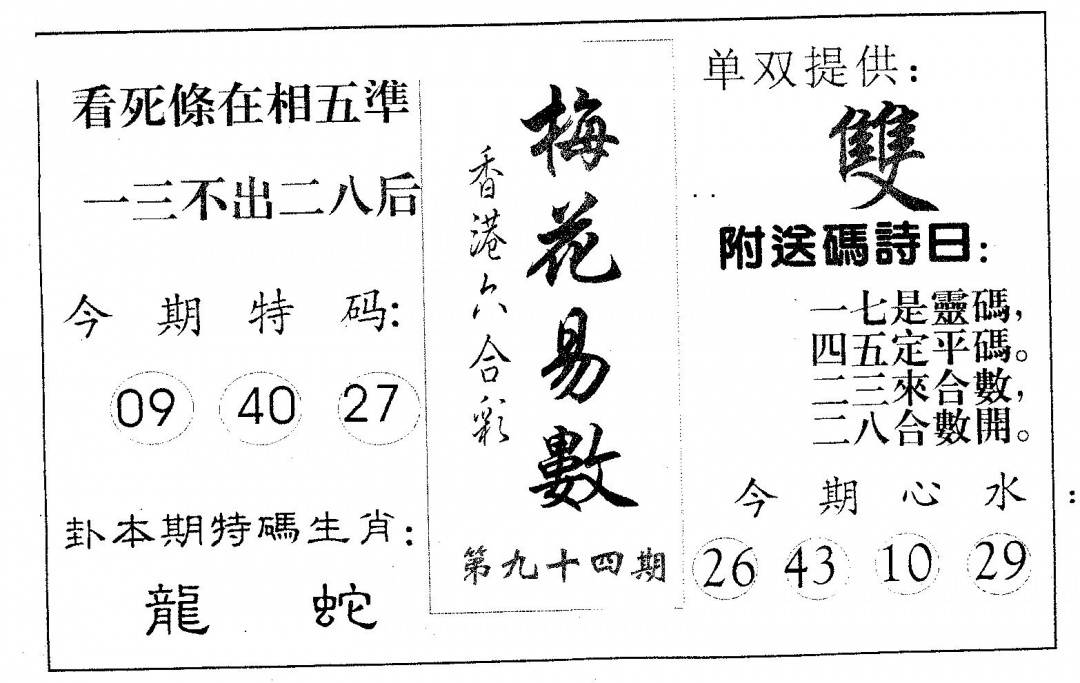 看死條在相五準
一三不出二八后
今期特码:
09 40 27
卦本期特碼生肖:
龍 蛇
梅花易數
香港六合彩
第九十四期
单双提供:
雙
附送碼詩曰:
一七是靈碼,
四五定平碼。
二三來合數,
二八合數開。
今期心水:
26 43 10 29